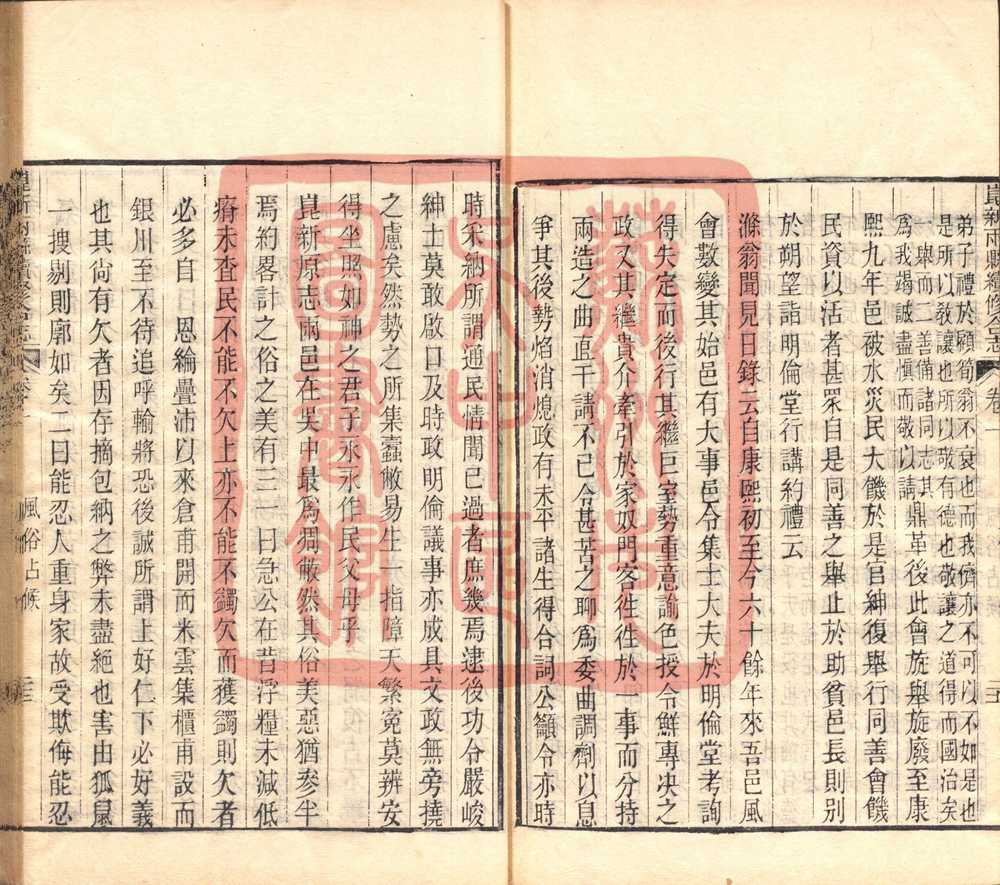 崑新兩縣續修合志
卷一
弟子禮於顧筍翁不衰也而我儕亦不可以不如是也
是所以教讓也所以敬有德也敬讓之道得而國治矣
一舉而二善備諸同志其
為我竭誠盡慎而敬以請
鼎革後此會旋舉旋廢至康
熙九年邑被水災民大饑於是官紳復舉行同善會饑
民資以活者甚眾自是同善之舉止於助貧邑長則別
於朔望詣明倫堂行講約禮云
滌翁聞見日錄云自康熙初至今六十餘年來吾邑風
會數變其始邑有大事邑令集士大夫於明倫堂考詢
得失定而後行其繼巨室勢重意諭色授令鮮專决之
政又其繼貴介牽引於家奴門客徃徃於一事而分持
兩造之曲直干請不已令甚苦之聊為委曲調劑以息
爭其後勢焰消熄政有未平諸生得合詞公籲令亦時
時采納所謂通民情聞已過者庶幾焉逮後功令嚴峻
紳士莫敢啟口及時政明倫議事亦成具文政無旁撓
之慮矣然勢之所集蠧敝易生一指障天繁寃莫辨安
得坐照如神之君子永永作民父母乎
崑新原志兩邑在吳中最為獨敝然其俗美惡猶參半
焉約畧計之俗之美有三一曰急公在昔浮糧未減低
瘠未查民不能不欠上亦不能不蠲欠而獲蠲則欠者
必多自　恩綸疊沛以來倉甫開而米雲集櫃甫設而
銀川至不待追呼輸將恐後誠所謂上好仁下必好義
也其尙有欠者因存摘包納之弊未盡絶也害由狐鼠
一搜剔則廓如矣二曰能忍人重身家故受欺侮能忍
風俗占候